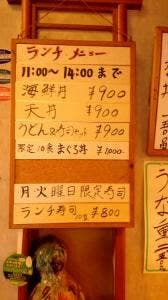 ランチ メニュー
11:00〜14:00まで
海鮮丼 ¥900
天丼 ¥900
うどん&寿司セット ¥900
限定10食 まぐろ丼 ¥1,000
月・火曜日限定寿司
ランチ寿司 10貫 ¥800
うな重